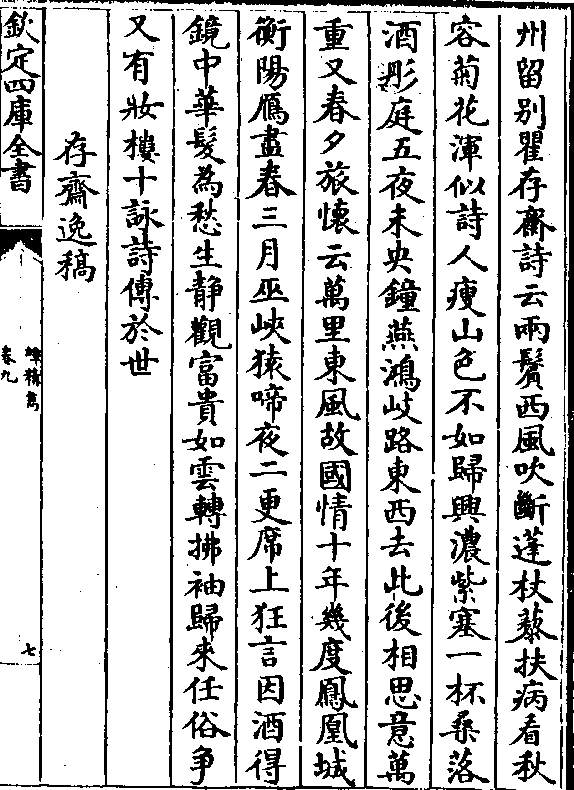 州留别瞿存齋詩云兩鬢西風吹斷蓬杖藜扶病看秋
容菊花渾似詩人瘦山色不如歸興濃紫塞一杯桑落
酒彤庭五夜未央鐘燕鴻岐路東西去此後相思意萬
重又春夕旅懐云萬里東風故國情十年幾度鳳凰城
衡陽鴈盡春三月巫峽猿啼夜二更席上狂言因酒得
鏡中華髮為愁生静觀富貴如雲轉拂袖歸來任俗争
又有妝樓十詠詩傳於世
存齋逸稿
欽定四庫全書
卷九
七